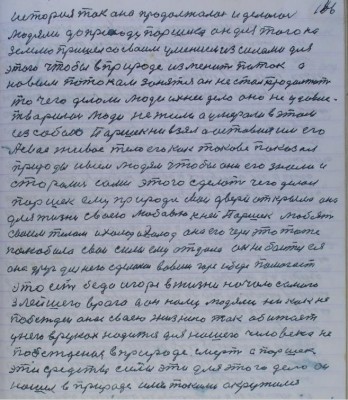 186
история так она продолжалася и делалася
людями до прихода паршека он для того на
землю пришел со своим умением и силами для
этого чтобы в природе изменить поток а
новым потокам занятся он не стал продолжать
то чего делали люди ихнее дело оно не удовле-
тварило люди не жили а умерали в этом
из собою Паршек ни взял а оставил им его
живое тело его как такова показал
природы и всем людям чтобы они его знали и
старались сами этого сделать чего делал
паршек ему природа свои двери открыла она
для жизни своего любовью к ней Паршек любят
своим телом и холода холод она его через это тоже
полюбила свои силы ему отдала он не боится ея
она друг для него сделался во всем горе и беде помогает
это есть беда и горе в жизни начало самого
злейшего врага а он наму людями никак не
побежден она своею жизнию так обитает
у него в руках надится для нашего человека не
побежденная в природе смерть а паршек
эти средства силы эти для этого дела он
нашел в природе ими такими окружился